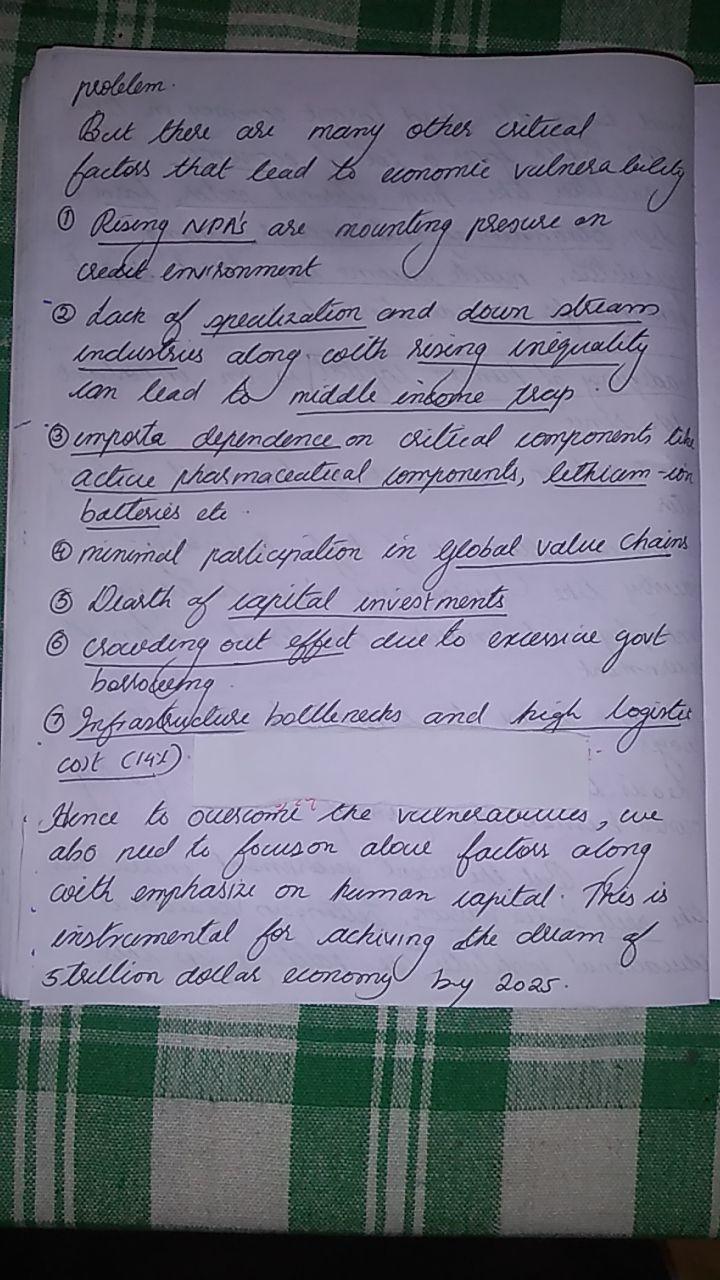 problem.
But there are many other critical
factors that lead to economic vulnerability
① Rising NPA's are mounting presure on
credit environment
② Lack of spealization and down stream
industries along with rising inequality
can lead to middle income trap.
③ importa dependence on critical components like
active pharmaceutical components, lethium-ion
batteries etc.
④ minimal participation in global value chains
⑤ Dearth of capital investments
⑥ crowding out effect due to excessive govt
borrowing.
⑦ Infrastructure bottlenecks and high logistic
cost (14%).
Hence to overcome the vulnerabilities, we
also need to focus on above factors along
with emphasize on human capital. This is
instrumental for achiving the dream of
5 trillion dollar economy by 2025.